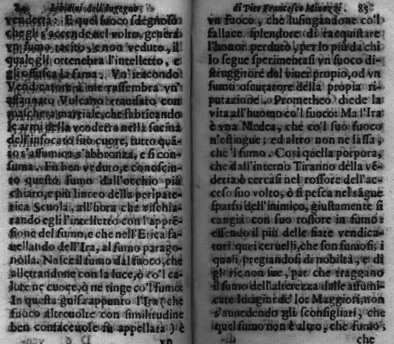 84 Libidini dell'Ingegno
vendetta. E quel fuoco sdegnoso
che gli s'accende nel volto, genera
vn fumo tacito, e non veduto, il
quale gli ottenebra l'intelletto, e
gli offusca la fama. Vn'iracondo
Vendicatore à me rassembra vn'
affannato Vulcano trauisato con
maschera martiale, che fabricando
le armi della vendetta nella fucina
dell'infocato suo cuore, tutto quã-
to s'affumica, s'abbronza, e si con-
suma. Fù ben veduto, e conosciu-
to questo fumo dall'occhio più
chiaro, e più linceo della peripate-
tica Scuola, all'hora che rischia-
rando egli l'intelletto con l'appre-
sione del fumo, e che nell'Etica fa-
uellando dell'Ira, al fumo parago-
nolla. Nasce il fumo dal fuoco, che
allettandone con la luce, ò co'l ca-
lore ne cuoce, ò ne tinge co'l fumo.
In questa guisa appunto l'Ira (che
fuoco altreuolte con similitudine
ben confaceuole fù appellata) è
vn
di Pier Francesco Minozzi. 85
vn fuoco, che lusingandone co'l
fallace splendore di racquistare
l'honor perduto, per lo più da chi
lo segue sperimentasi vn fuoco di-
struggitore del viuer proprio, od vn
fumo oscuratore della propia ri-
putazione. Prometheo diede la
vita all'huomo co'l fuoco: Ma l'Ira
è vna Medea, che co'l suo fuoco
n'estingue; ed altro non ne lassa,
che 'l fumo. Così quella porpora,
che all'interno Tiranno della vẽ-
detta ò cercasi nel rossore dell'ac-
ceso suo volto, ò si pesca nel sãgue
sparso dell'inimico, giustamente si
cangia con suo rossore in fumo
essendo il più delle fiate vendica-
tori quei ceruelli, che son fumosi; i
quali pregiandosi di nobiltà, e di
glorie non sue, par che traggano
il fumo dell'alterezza dalle affumi-
cate Imagini de' lor Maggiori, non
s'auuedendo gli sconsigliati, che
quel fumo non è altro, che fumo,
che